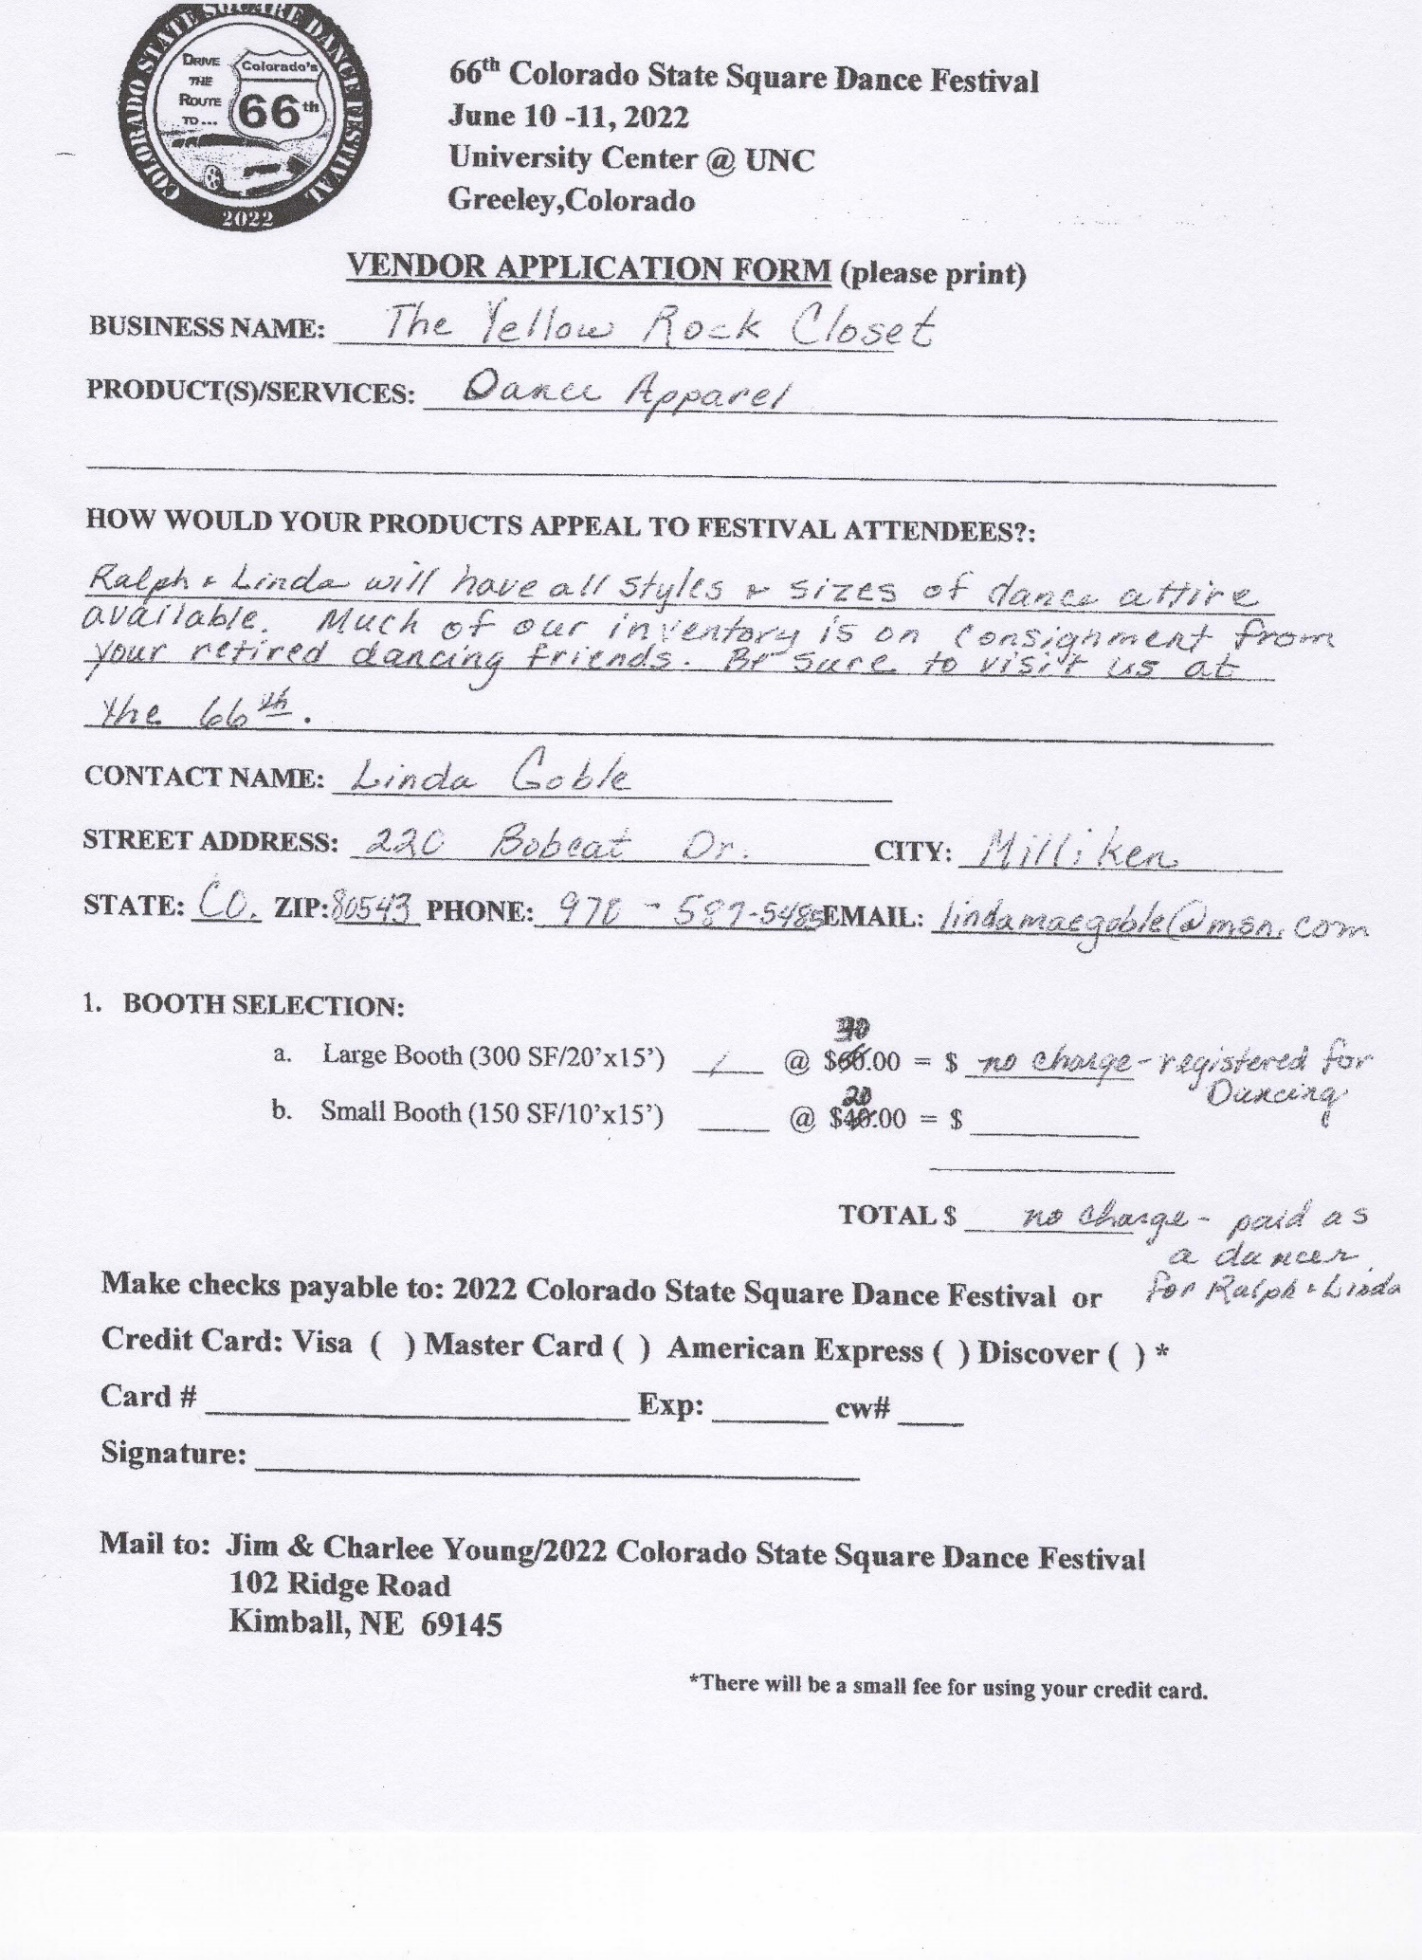 COLORADO STATE SQUARE DANCE FESTIVAL
DRIVE
THE
ROUTE
TO...
Colorado's
66th
2022
66th Colorado State Square Dance Festival
June 10 -11, 2022
University Center @ UNC
Greeley,Colorado
VENDOR APPLICATION FORM (please print)
BUSINESS NAME: The Yellow Rock Closet
PRODUCT(S)/SERVICES: Dance Apparel
HOW WOULD YOUR PRODUCTS APPEAL TO FESTIVAL ATTENDEES?:
Ralph & Linda will have all styles & sizes of dance attire
available. Much of our inventory is on consignment from
your retired dancing friends. Be sure to visit us at
the 66th.
CONTACT NAME: Linda Goble
STREET ADDRESS: 220 Bobcat Dr. CITY: Milliken
STATE: CO. ZIP:80543 PHONE: 970 - 587-5485 EMAIL: lindamaegoble@msn.com
1. BOOTH SELECTION:
30
a. Large Booth (300 SF/20'x15') / @ $60.00 = $ no charge - registered for
Dancing
20
b. Small Booth (150 SF/10'x15') @ $40.00 = $
TOTAL $ no charge - paid as
a dancer
for Ralph & Linda
Make checks payable to: 2022 Colorado State Square Dance Festival or
Credit Card: Visa ( ) Master Card ( ) American Express ( ) Discover ( ) *
Card # Exp: cw#
Signature:
Mail to: Jim & Charlee Young/2022 Colorado State Square Dance Festival
102 Ridge Road
Kimball, NE 69145
*There will be a small fee for using your credit card.